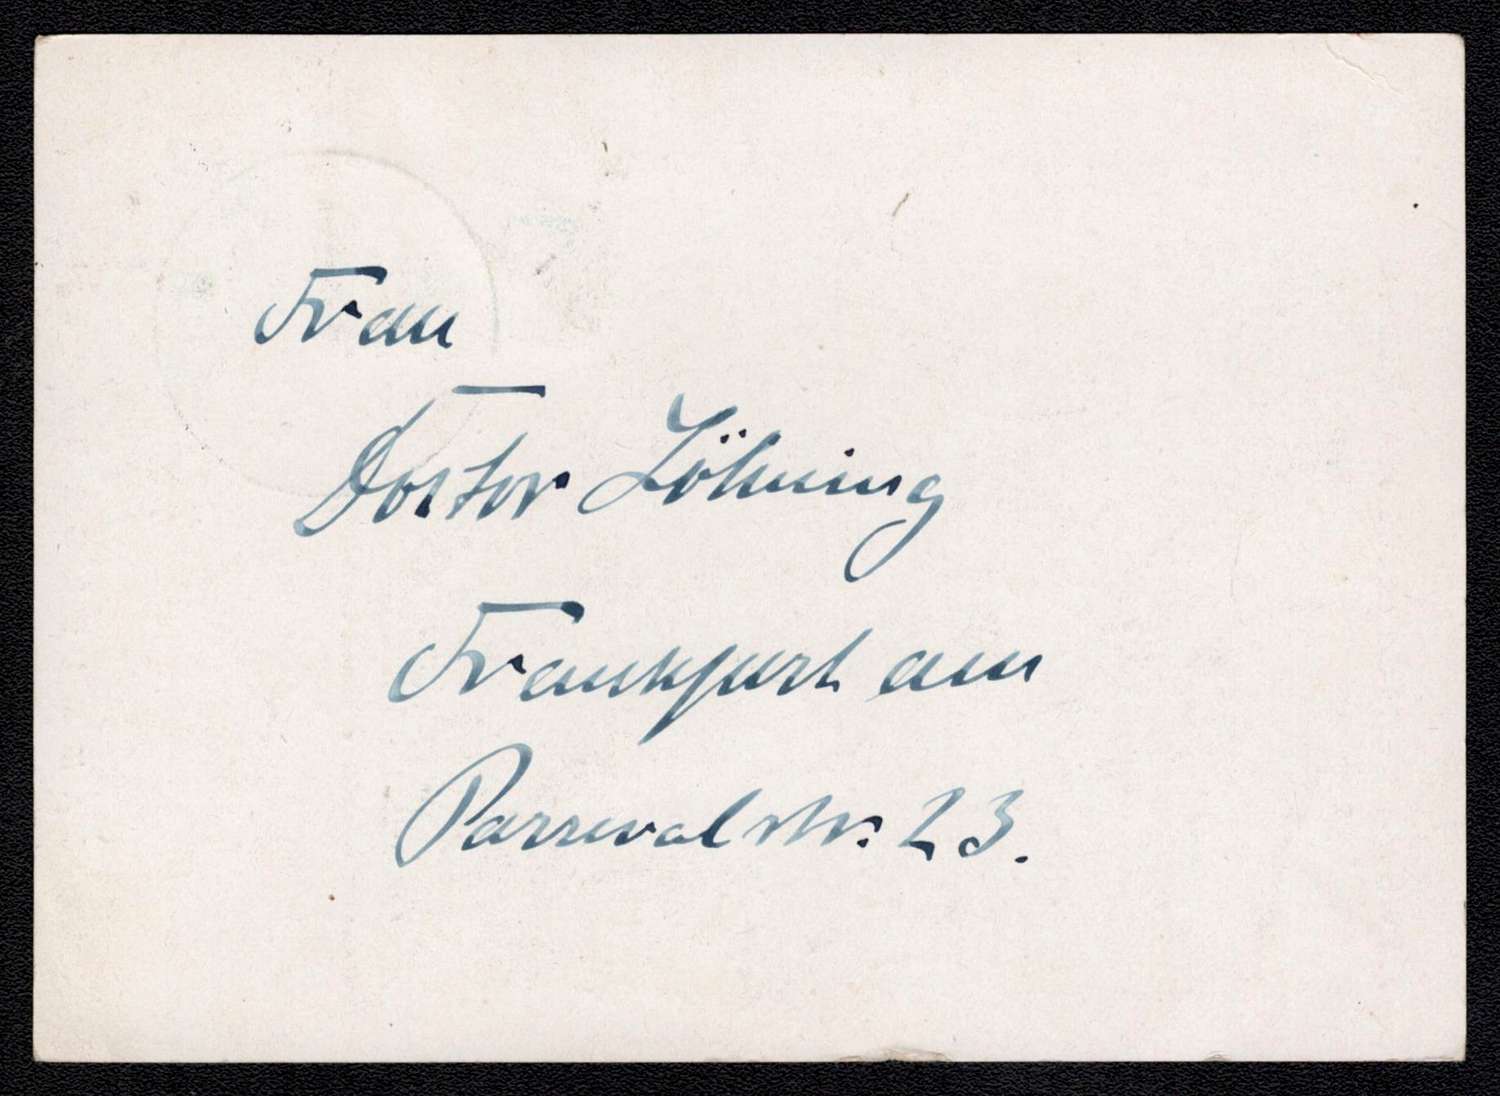 Frau
Doktor Löhning
Frankfurt am
Parsevalstr. 23.